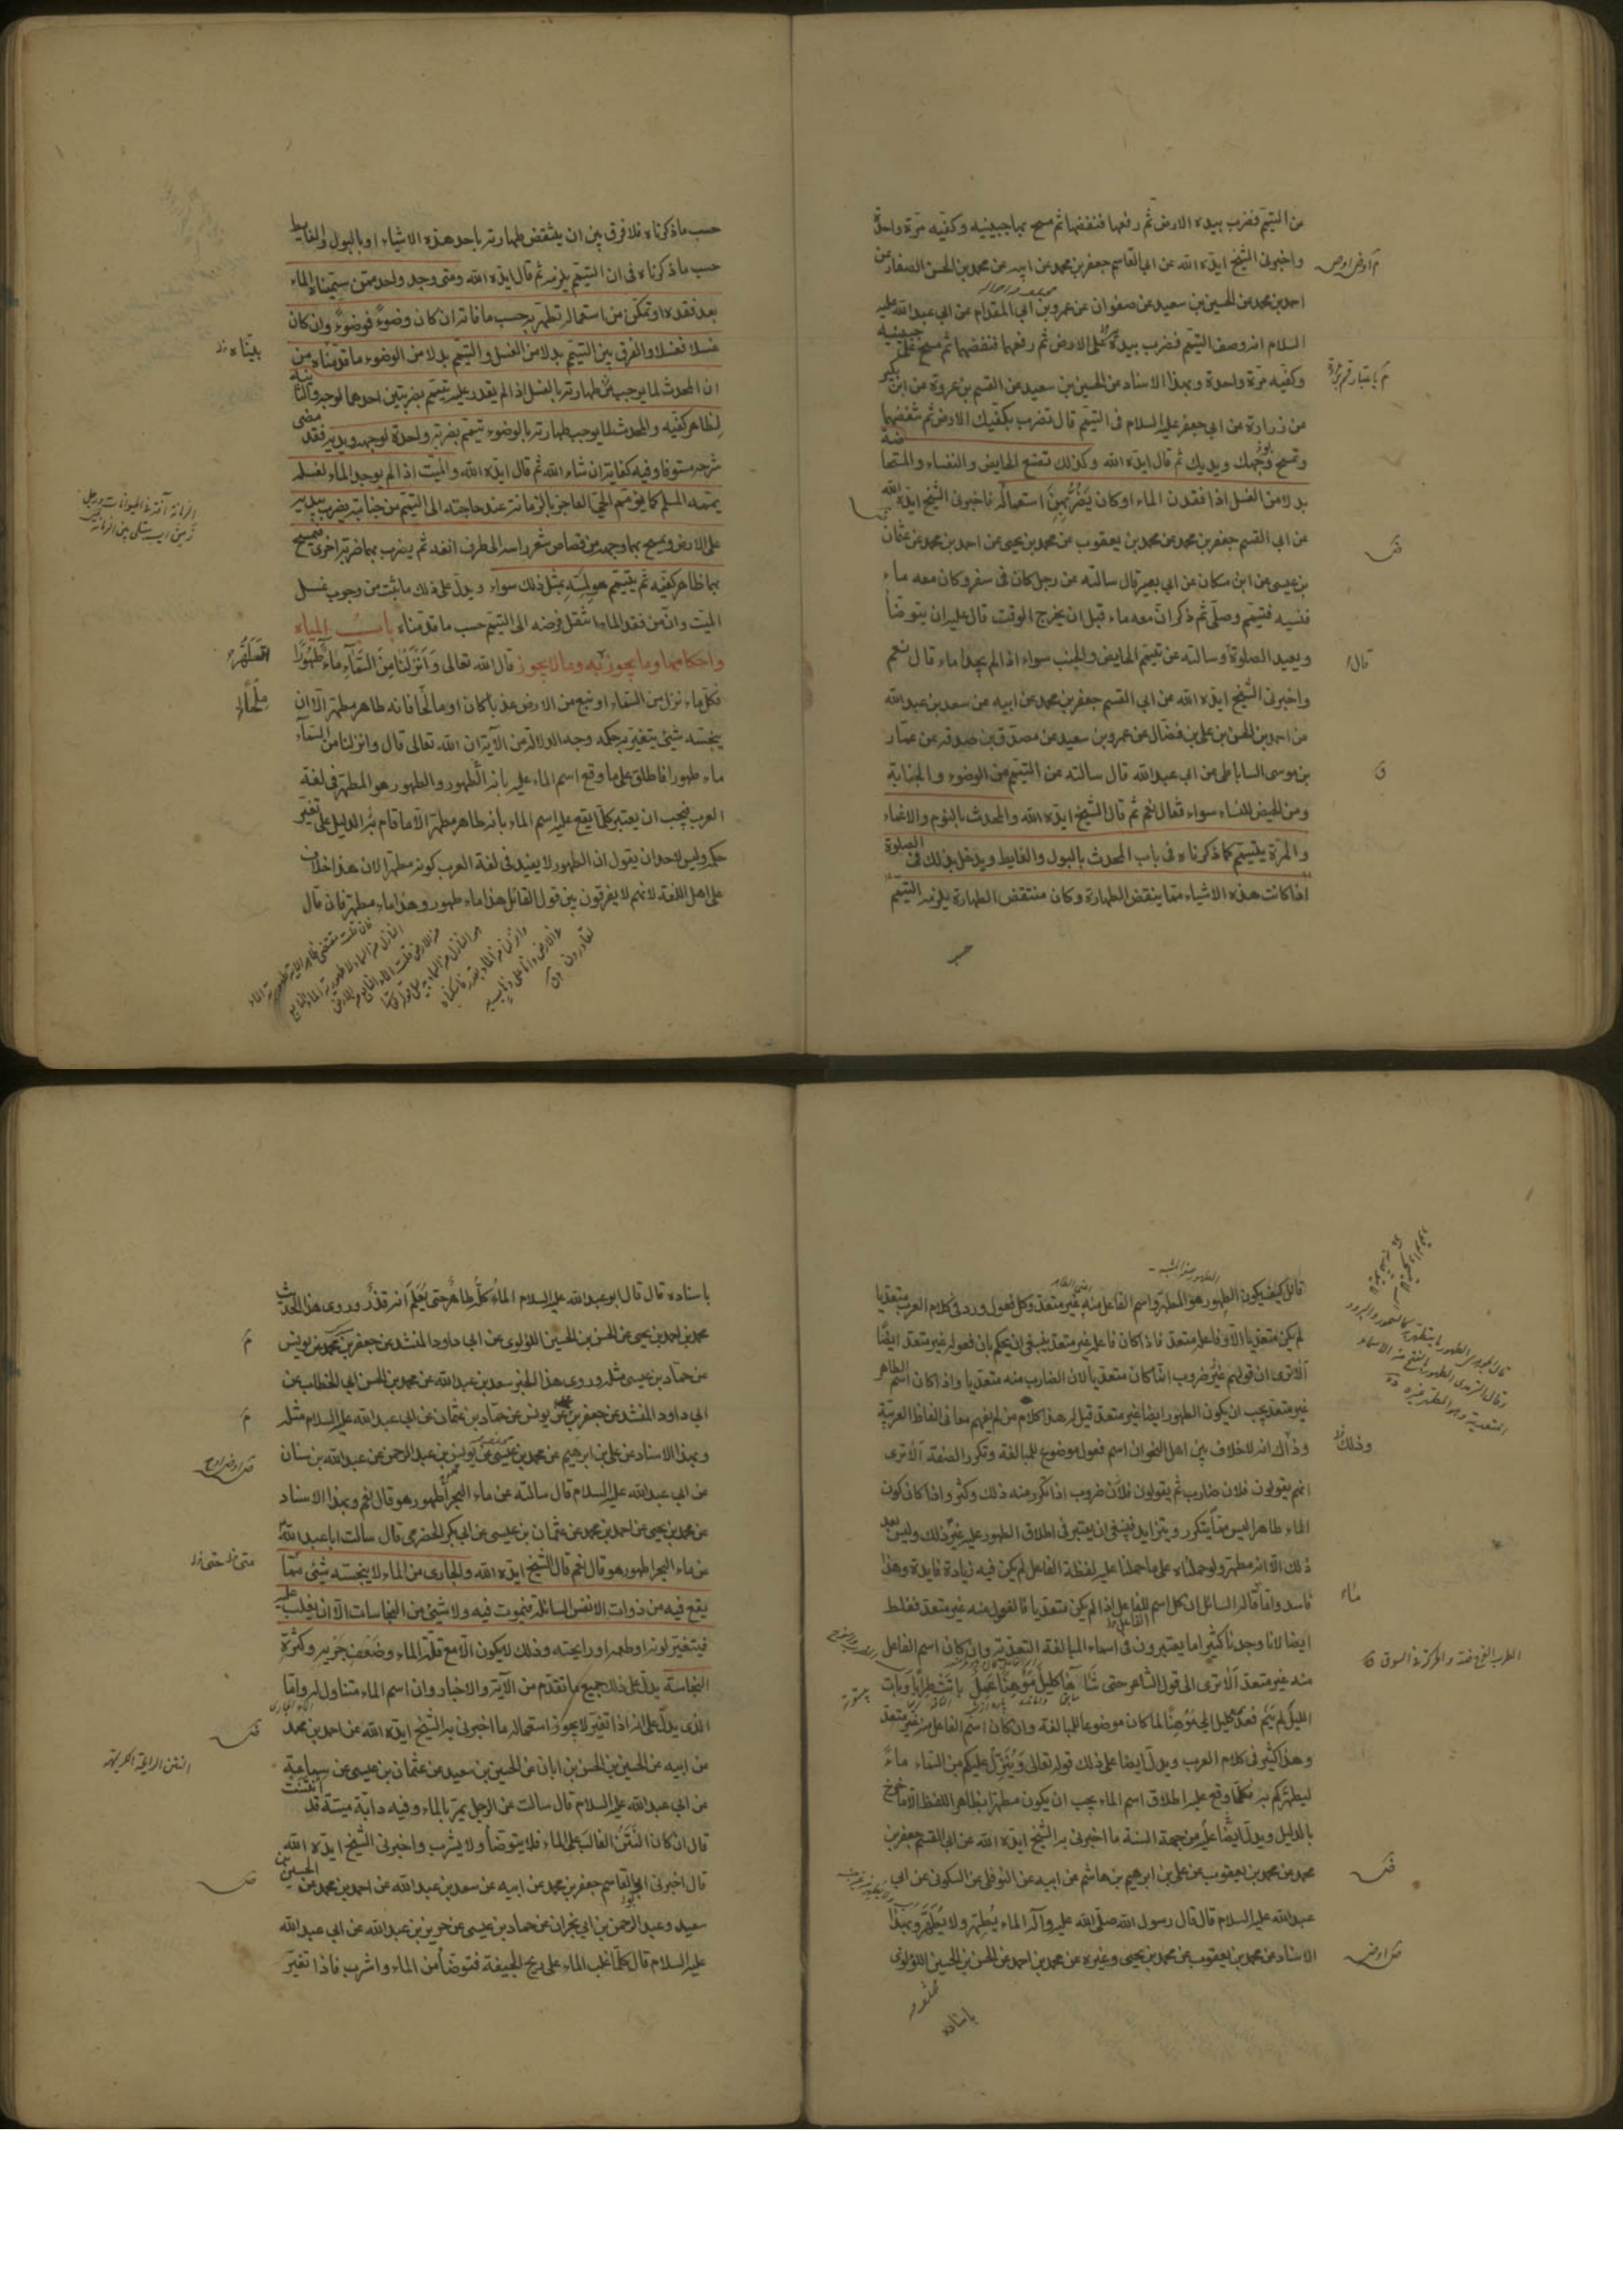 من التيمم فضرب بيده الارض ثم رفعها فنفضها ثم مسح بها جبينيه وكفيه مرة واحدة
واخبرنى الشيخ ايده الله عن ابى القاسم جعفر بن محمد عن ابيه عن محمد بن الحسن الصفار عن
احمد بن محمد عن الحسين بن سعيد عن صفوان عن عمرو بن ابى المقدام عن ابى عبد الله عليه
السلام انه وصف التيمم فضرب بيديه على الارض ثم رفعها فنفضها ثم مسح على جبينيه
وكفيه مرة واحدة وبهذا الاسناد عن الحسين بن سعيد عن القسم بن عروة عن ابن بكير
عن زرارة عن ابى جعفر عليه السلام فى التيمم قال تضرب بكفيك الارض ثم تنفضهما
وتمسح وجهك ويديك ثم قال ايده الله وكذلك تصنع الحايض والنفساء والمستحاضة
بدلا من الغسل اذا فقدن الماء او كان يضر بهن استعماله فاخبرنى الشيخ ايده الله
عن ابى القسم جعفر بن محمد عن محمد بن يعقوب عن محمد بن يحيى عن احمد بن محمد عن عثمان
بن عيسى عن ابن مسكان عن ابى بصير قال سالته عن رجل كان فى سفر وكان معه ماء
فنسيه فتيمم وصلى ثم ذكر ان معه ماء قبل ان يخرج الوقت قال عليه ان يتوضأ
ويعيد الصلوة وسالته عن تيمم الحايض والجنب سواء اذا لم يجدا ماء قال نعم
واخبرنى الشيخ ايده الله عن ابى القسم جعفر بن محمد عن ابيه عن سعد بن عبد الله
عن احمد بن الحسن بن على بن فضال عن عمرو بن سعيد عن مصدق بن صدقه عن عمار
بن موسى الساباطى عن ابى عبد الله قال سالته عن التيمم من الوضوء والجنابة
ومن الحيض للنساء سواء فقال نعم ثم قال الشيخ ايده الله والمحدث بالنوم والاغماء
والمرة يتيمم كما ذكرناه فى باب المحدث بالبول والغايط ويدخل بذلك فى الصلوة
اذا كانت هذه الاشياء مما ينقض الطهارة وكان منتقض الطهارة يلزمه التيمم
حسب
قال
حسب ما ذكرناه فلا فرق بين ان ينتقض طهارته باحد هذه الاشياء او بالبول والغايط
حسب ما ذكرناه فى ان التيمم يلزمه ثم قال ايده الله ومتى وجد واحد ممن سميناه الماء
بعد فقده او تمكن من استعماله تطهر به حسب ما فاته ان كان وضوءً فوضوءً وان كان
غسلا فغسلا والفرق بين التيمم بدلا من الغسل والتيمم بدلا من الوضوء ما قدمناه من
ان المحدث لما يوجب طهارته بالغسل اذا لم يقدر عليه تيمم بضربتين احدهما لوجهه والثانية
لظاهر كفيه والمحدث لما يوجب طهارته بالوضوء تيمم بضربة واحدة لوجهه ويديه فقد مضى
شرحه مستوفا وفيه كفاية ان شاء الله ثم قال ايده الله والميت اذا لم يوجد الماء لغسله
يممه المسلم كما يؤمم الحى العاجز بالزمانة عند حاجته الى التيمم من جنابة يضرب بيديه
على الارض ويمسح بها وجهه من قصاص شعر راسه الى طرف انفه ثم يضرب بهما ضربة اخرى فيمسح
بهما ظاهر كفيه ثم يتيمم هو لمسه بمثل ذلك سواء ويدل على ذلك ما ثبت من وجوب غسل
الميت وان من فقد الماء انتقل فرضه الى التيمم حسب ما قدمناه باب المياه
واحكامها وما يجوز به وما لا يجوز قال الله تعالى وَاَنْزَلْنَا مِنَ السَّمَآءِ مَاءً طَهُورًا
فكل ماء نزل من السماء او نبع من الارض عذبا كان او مالحا فانه طاهر مطهر الا ان
ينجسه شئ يتغير به حكمه وجه الدلالة من الآية ان الله تعالى قال وانزلنا من السماء
ماء طهورا فاطلق على ما وقع اسم الماء عليه بانه الطهور والطهور هو المطهر فى لغة
العرب فيجب ان يعتبر كلما يقع عليه اسم الماء بانه طاهر مطهر الا ما قام به الدليل على تغير
حكمه وليس لاحد ان يقول ان الطهور لا يفيد فى لغة العرب كونه مطهرا لان هذا خلاف
على اهل اللغة لانهم لا يفرقون بين قول القائل هذا ماء طهور وهذا ماء مطهر فان قال
قائل كيف يكون الطهور هو المطهر واسم الفاعل منه غير متعد وكل فعول ورد فى كلام العرب متعديا
لم يكن متعديا الا وفاعله متعد فاذا كان فاعله غير متعد ينبغى ان يحكم بان فعوله غير متعد ايضا
الا ترى ان قولهم غير ضروب انما كان متعديا لان الضارب منه متعديا واذا كان اسم الطاهر
غير متعد يجب ان يكون الطهور ايضا غير متعد قيل له هذا كلام من لم يفهم معانى الفاظ العربية
وذاك انه لا خلاف بين اهل النحو ان اسم فعول موضوع للمبالغة وتكرر الصفة الا ترى
انهم يقولون فلان ضارب ثم يقولون فلان ضروب اذا تكرر منه ذلك وكثر واذا كان كون
الماء طاهرا ليس مما يتكرر ويتزايد فينبغى ان يعتبر فى اطلاق الطهور عليه غير ذلك وليس بعد
ذلك الا انه مطهر ولو حملناه على ما حملنا عليه لفظة الفاعل لم يكن فيه زيادة فايدة وهذا
فاسد واما ما قاله السائل ان كل اسم للفاعل اذا لم يكن متعديا فالفعول منه غير متعد فغلط
ايضا لانا وجدنا كثيرا ما يعتبرون فى اسماء المبالغة التعدية وان كان اسم الفاعل
منه غير متعد الا ترى الى قول الشاعر حتى شآها كليل موهنا عمل باتت طرابا وبات
الليل لم ينم فعدى كليل الى موهنا لما كان موضوعا للمبالغة وان كان اسم الفاعل منه غير متعد
وهذا كثير فى كلام العرب ويدل ايضا على ذلك قوله تعالى وينزل عليكم من السماء ماءً
ليطهركم به فكلما وقع عليه اطلاق اسم الماء يجب ان يكون مطهرا بظاهر اللفظ الا ما خرج
بالدليل ويدل ايضا عليه من جهة السنة ما اخبرنى به الشيخ ايده الله عن ابى القسم جعفر بن
محمد عن محمد بن يعقوب عن على بن ابرهيم بن هاشم عن ابيه عن النوفلى عن السكونى عن ابى
عبد الله عليه السلام قال قال رسول الله صلى الله عليه وآله الماء يُطهِّر ولا يُطَهَّر وبهذا
الاسناد عن محمد بن يعقوب عن محمد بن يحيى وغيره عن محمد بن احمد عن الحسن بن الحسين اللؤلوى
باسناده
وذلك
ماء
باسناده قال قال ابو عبد الله عليه السلام الماء كله طاهر حتى يُعلم انه قذر وروى هذا الحديث
محمد بن احمد بن يحيى عن الحسن بن الحسين اللؤلوى عن ابى داود المنشد عن جعفر بن محمد عن يونس
عن حماد بن عيسى مثله وروى هذا الخبر سعد بن عبد الله عن محمد بن الحسن ابى الخطاب عن
ابى داود المنشد عن جعفر بن يونس عن حماد بن عثمان عن ابى عبد الله عليه السلام مثله
وبهذا الاسناد عن على بن ابرهيم عن محمد بن عيسى عن يونس بن عبد الرحمن عن عبد الله بن سنان
عن ابى عبد الله عليه السلام قال سالته عن ماء البحر أطهور هو قال نعم وبهذا الاسناد
عن محمد بن يحيى عن احمد بن محمد عن عثمان بن عيسى عن ابى بكر الحضرمى قال سالت ابا عبد الله
عن ماء البحر اطهور هو قال نعم قال الشيخ ايده الله والجارى من الماء لا ينجسه شئ مما
يقع فيه من ذوات الانفس السائلة فيموت فيه ولا شئ من النجاسات الا ان يغلب عليه
فيتغير لونه او طعمه او رايحته وذلك لا يكون الا مع قلة الماء وضعف جريه وكثرة
النجاسة يدل على ذلك جميع ما تقدم من الآية والاخبار وان اسم الماء متناول له واما
الذى يدل على انه اذا تغير لا يجوز استعماله ما اخبرنى به الشيخ ايده الله عن احمد بن محمد
عن ابيه عن الحسين بن الحسن بن ابان عن الحسين بن سعيد عن عثمان بن عيسى عن سماعة
عن ابى عبد الله عليه السلام قال سالت عن الرجل يمر بالماء وفيه دابة ميتة قد انتنت
قال ان كان النتن الغالب على الماء فلا يتوضأ ولا يشرب واخبرنى الشيخ ايده الله
قال اخبرنى ابو القاسم جعفر بن محمد عن ابيه عن سعد بن عبد الله عن احمد بن محمد عن الحسين بن
سعيد وعبد الرحمن بن ابى نجران عن حماد بن عيسى عن حريز بن عبد الله عن ابى عبد الله
عليه السلام قال كلما غلب الماء على ريح الجيفة فتوضأ من الماء واشرب فاذا تغير
النتن الرايحة الكريهة